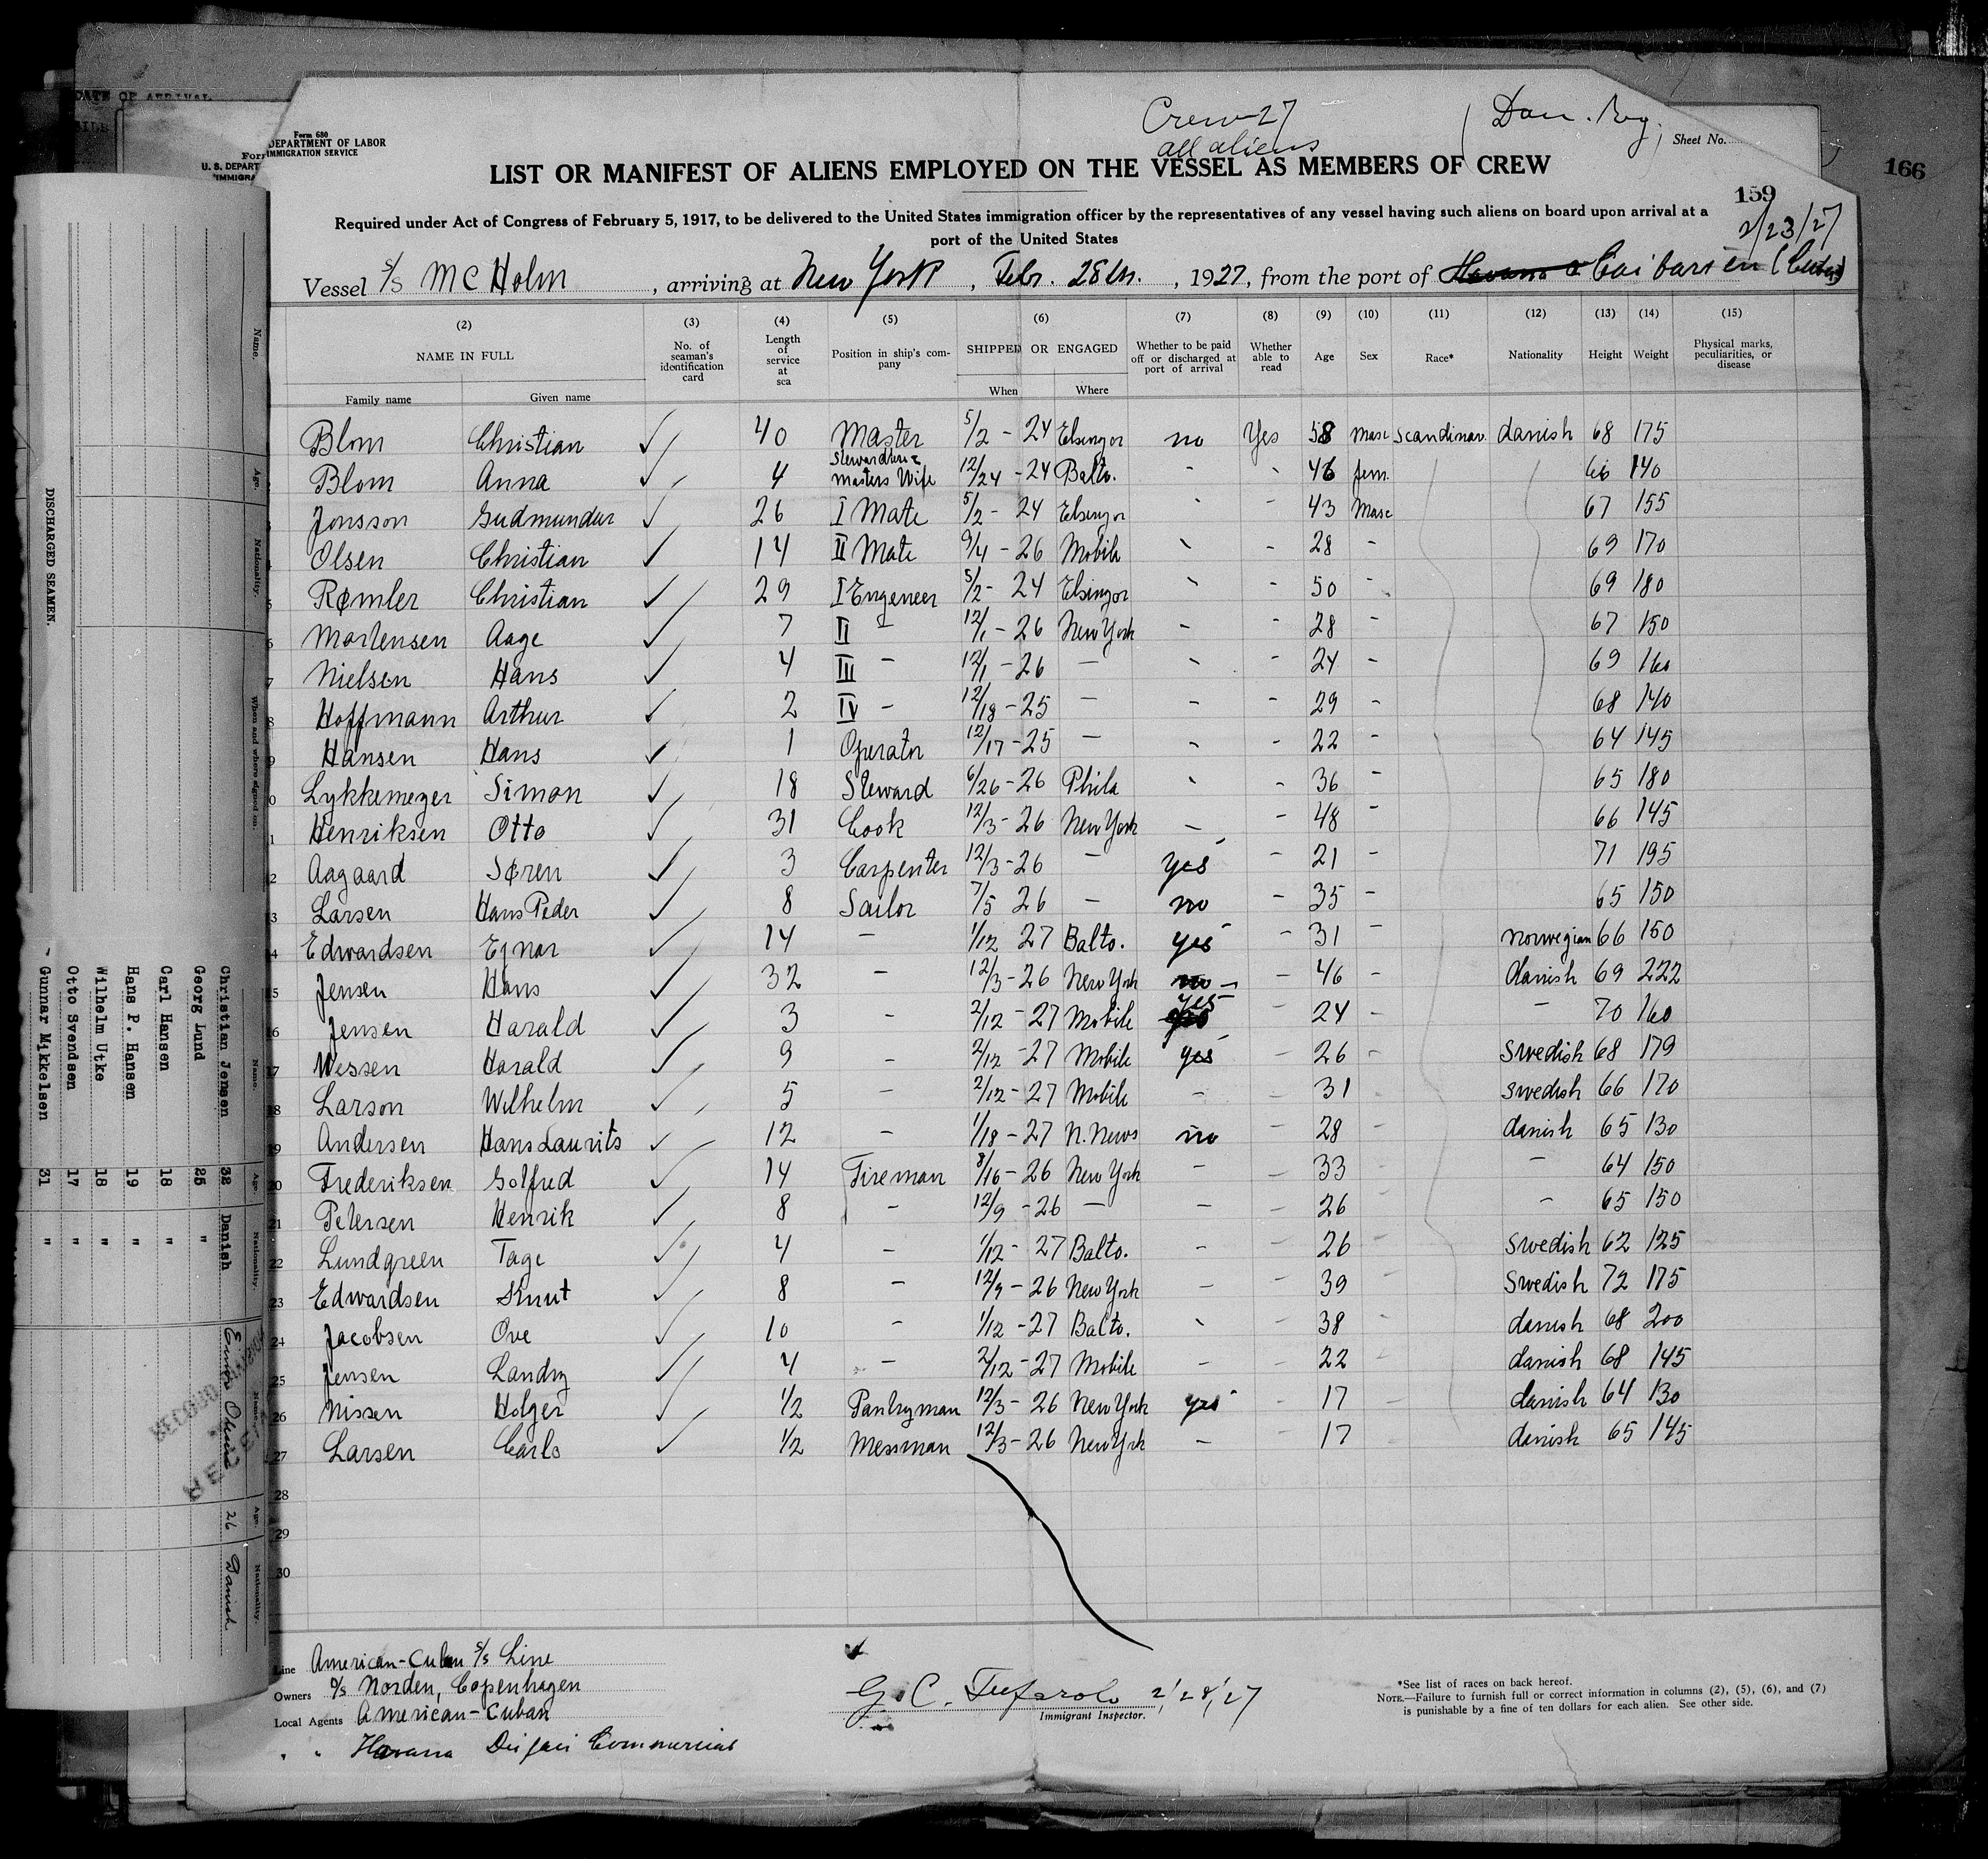 Crew 27
all aliens
Dan. Reg.
Sheet No.
Form 680
DEPARTMENT OF LABOR
IMMIGRATION SERVICE
U. S. DEPART
IMMIGRA
DATE OF ARRIVAL
166
LIST OR MANIFEST OF ALIENS EMPLOYED ON THE VESSEL AS MEMBERS OF CREW
159
Required under Act of Congress of February 5, 1917, to be delivered to the United States immigration officer by the representatives of any vessel having such aliens on board upon arrival at a
port of the United States
2/23/27
Vessel S/S Mc Holm, arriving at New York, Febr. 28th., 1927, from the port of Havana Caibarien (Cuba)
(2) (3) (4) (5) (6) (7) (8) (9) (10) (11) (12) (13) (14) (15)
NAME IN FULL
Family name Given name
No. of seaman's identification card
Length of service at sea
Position in ship's company
SHIPPED OR ENGAGED
When Where
Whether to be paid off or discharged at port of arrival
Whether able to read
Age Sex Race* Nationality Height Weight
Physical marks, peculiarities, or disease
Blom Christian ✓ 40 Master 5/2 - 24 Elsingor no Yes 58 Masc Scandinav. danish 68 175
Blom Anna ✓ 4 Stewardess & Masters Wife 12/24 - 24 Balto. - - 46 fem. 66 140
3 Jonsson Gudmundur ✓ 26 I Mate 5/2 - 24 Elsingor - - 43 Masc 67 155
4 Olsen Christian ✓ 14 II Mate 9/4 - 26 Mobile - - 28 - 69 170
5 Rømler Christian ✓ 29 I Engeneer 5/2 - 24 Elsingor - - 50 - 69 180
6 Mortensen Aage ✓ 7 II - 12/1 - 26 New York - - 28 - 67 150
7 Nielsen Hans ✓ 4 III - 12/1 - 26 - - - 24 - 69 160
8 Hoffmann Arthur ✓ 2 IV - 12/18 - 25 - - - 29 - 68 140
9 Hansen Hans ✓ 1 Operator 12/17 - 25 - - - 22 - 64 145
10 Lykkemeyer Simon ✓ 18 Steward 6/26 - 26 Phila - - 36 - 65 180
11 Henriksen Otto ✓ 31 Cook 12/3 - 26 New York - - 48 - 66 145
12 Aagaard Søren ✓ 3 Carpenter 12/3 - 26 - yes - 21 - 71 195
13 Larsen Hans Peder ✓ 8 Sailor 7/5 26 - no - 35 - 65 150
14 Edwardsen Ejnar ✓ 14 - 1/12 27 Balto. yes - 31 - norwegian 66 150
15 Jensen Hans ✓ 32 - 12/3 - 26 New York no - - 46 - danish 69 222
16 Jensen Harald ✓ 3 - 2/12 - 27 Mobile yes - 24 - - 70 160
17 Wessen Harald ✓ 9 - 2/12 - 27 Mobile yes - 26 - Swedish 68 179
18 Larson Wilhelm ✓ 5 - 2/12 - 27 Mobile - - 31 Swedish 66 170
19 Andersen Hans Laurits ✓ 12 - 1/18 - 27 N. News no - 28 - danish 65 130
20 Frederiksen Golfred ✓ 14 Fireman 8/16 - 26 New York - - 33 - 64 150
21 Petersen Henrik ✓ 8 - 12/9 - 26 - - - 26 - - 65 150
22 Lundgreen Tage ✓ 4 - 1/12 - 27 Balto. - - 26 - Swedish 62 125
23 Edwardsen Knut ✓ 8 - 12/9 - 26 New York - - 39 - Swedish 72 175
24 Jacobsen Ove ✓ 10 - 1/12 - 27 Balto. - - 38 - danish 68 200
25 Jensen Landry ✓ 4 - 2/12 - 27 Mobile - - 22 - danish 68 145
26 Nissen Holger ✓ 1/2 Pantryman 12/3 - 26 New York yes - 17 - danish 64 130
27 Larsen Carlo ✓ 1/2 Messman 12/3 - 26 New York - - 17 danish 65 145
28
29
30
Line American-Cuban S/S Line
Owners D/S Norden, Copenhagen
Local Agents American-Cuban
" " Havana Commercial
G. C. Tufarolo 2/28/27
Immigrant Inspector.
*See list of races on back hereof.
NOTE.—Failure to furnish full or correct information in columns (2), (5), (6), and (7)
is punishable by a fine of ten dollars for each alien. See other side.
DISCHARGED SEAMEN.
Name. Age. Nationality. When and where signed on.
Name. Age. Nationality.
Christian Jensen 32 Danish
Georg Lund 25 "
Carl Hansen 18 "
Hans P. Hansen 19 "
Wilhelm Utke 18 "
Otto Svendsen 17 "
Gunnar Mikkelsen 31 "
Name. Age. Nationality.
26 Danish